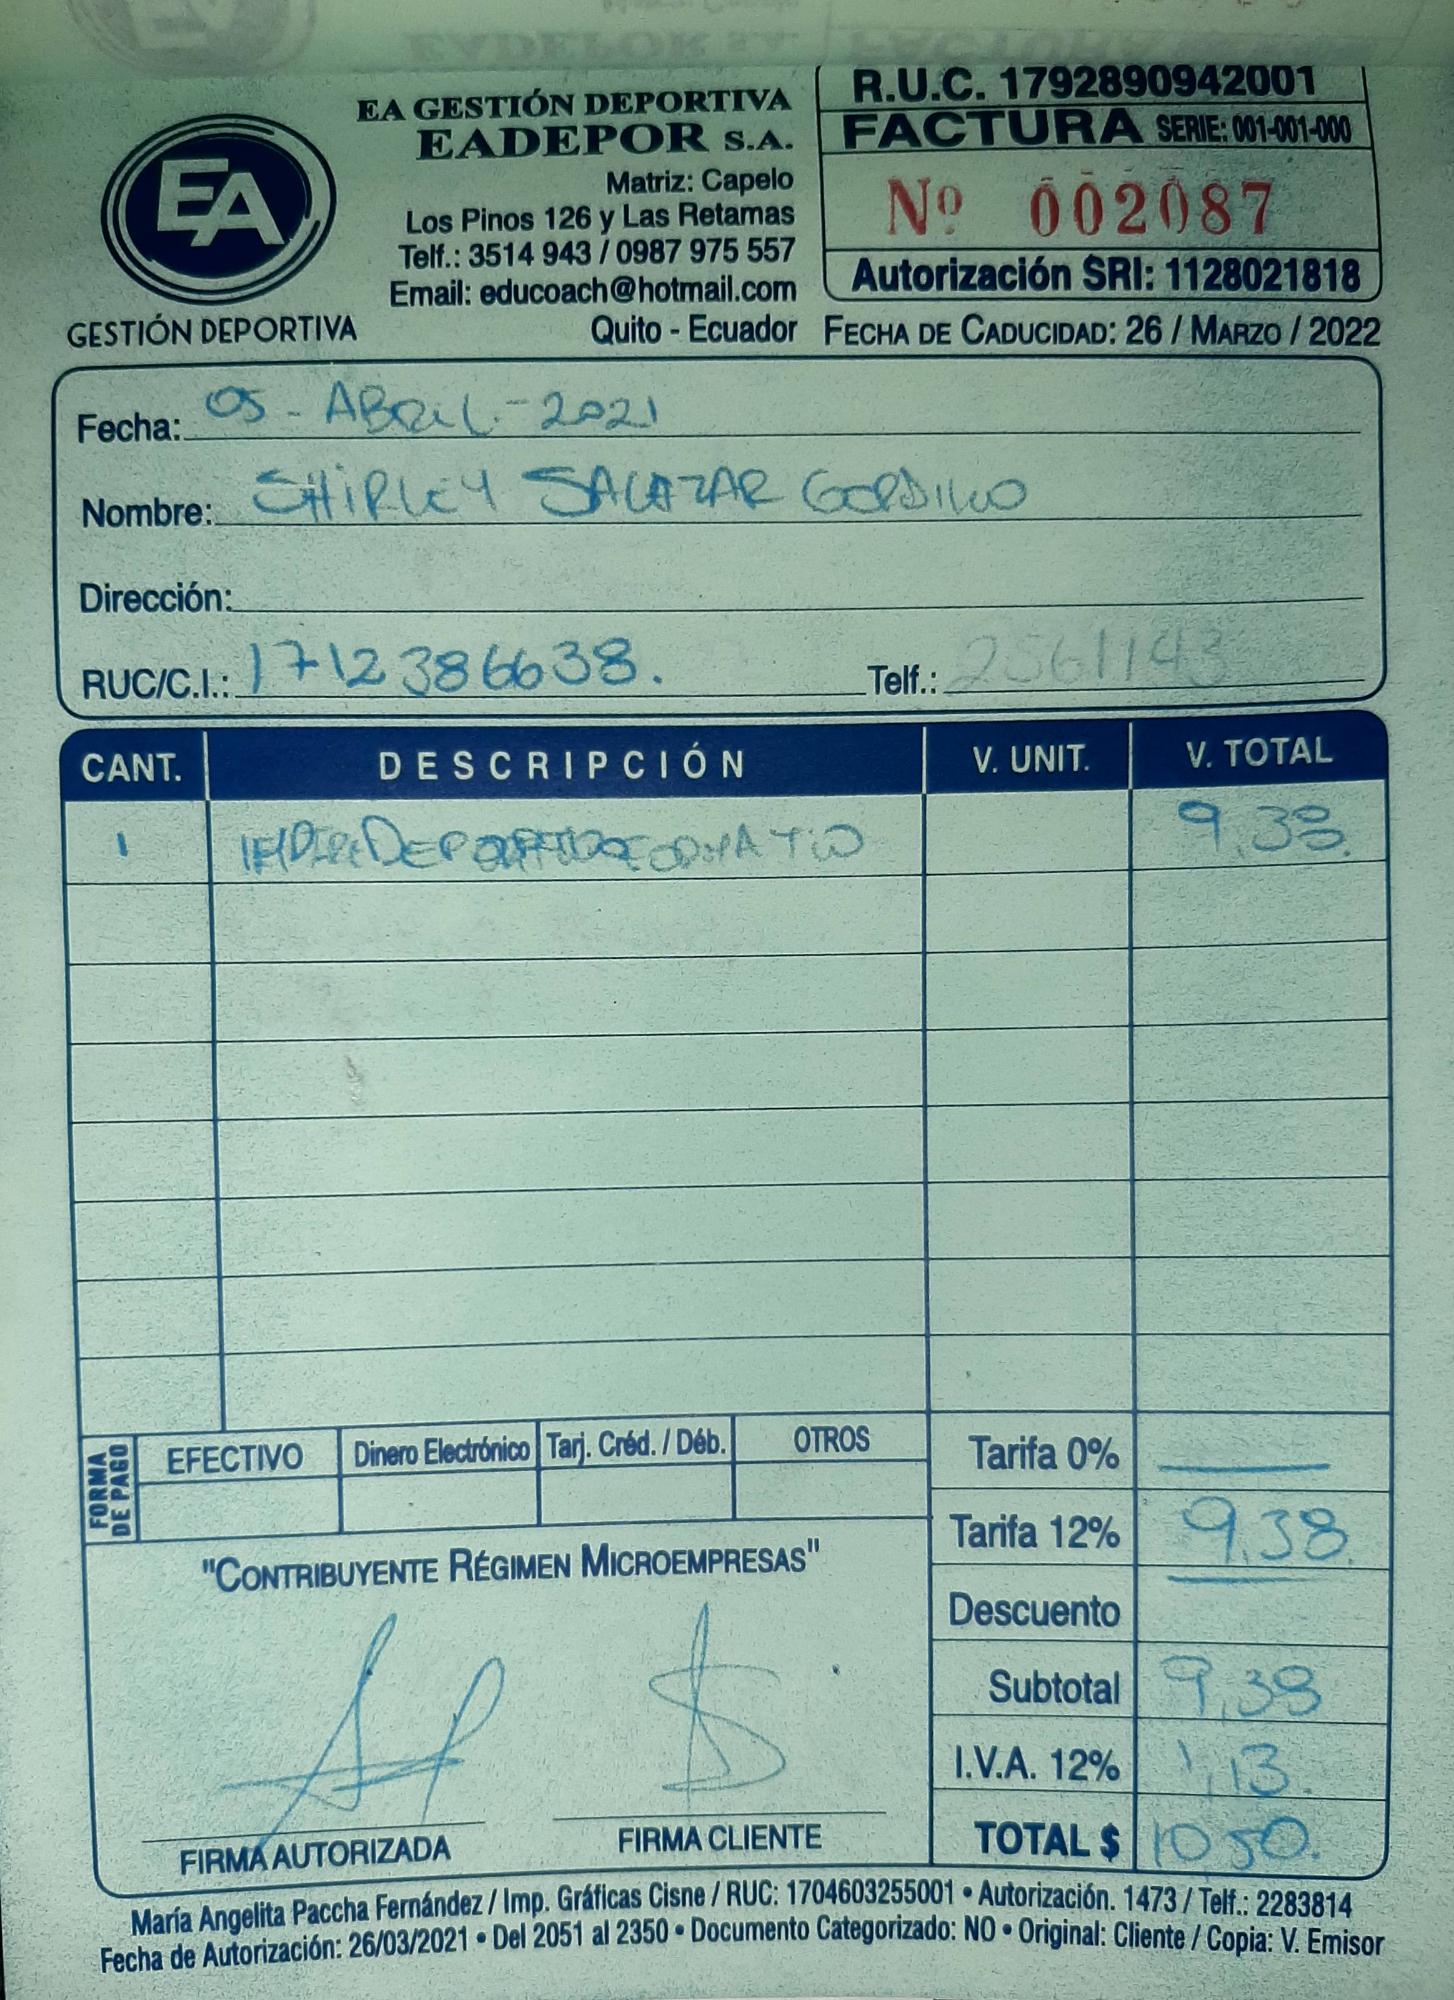 EA GESTIÓN DEPORTIVA
EADEPOR S.A.
Matriz: Capelo
Los Pinos 126 y Las Retamas
Telf.: 3514 943 / 0987 975 557
Email: educoach@hotmail.com
Quito - Ecuador
EA
GESTIÓN DEPORTIVA
R.U.C. 1792890942001
FACTURA SERIE: 001-001-000
Nº 002087
Autorización SRI: 1128021818
FECHA DE CADUCIDAD: 26 / MARZO / 2022
Fecha: 05 - ABRIL - 2021
Nombre: SHIRLEY SALAZAR GORDILLO
Dirección:
RUC/C.I.: 1712386638. Telf.: 2861143
CANT. DESCRIPCIÓN V. UNIT. V. TOTAL
1 9.38.
FORMA DE PAGO
EFECTIVO Dinero Electrónico Tarj. Créd. / Déb. OTROS
Tarifa 0%
Tarifa 12% 9.38.
Descuento
Subtotal 9,38
I.V.A. 12% 1,13.
TOTAL $ 10 50.
"CONTRIBUYENTE RÉGIMEN MICROEMPRESAS"
FIRMA AUTORIZADA FIRMA CLIENTE
María Angelita Paccha Fernández / Imp. Gráficas Cisne / RUC: 1704603255001 • Autorización. 1473 / Telf.: 2283814
Fecha de Autorización: 26/03/2021 • Del 2051 al 2350 • Documento Categorizado: NO • Original: Cliente / Copia: V. Emisor